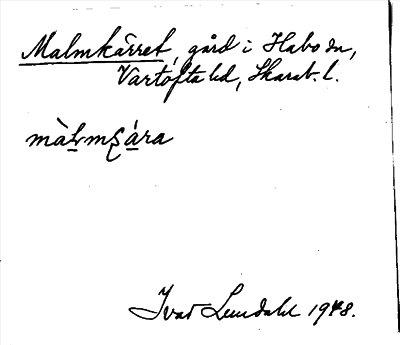 Malmkärret, gård i Habo sn,
Vartofta hd, Skarab. l.
màlmʂára
Ivar Lundahl 1948.